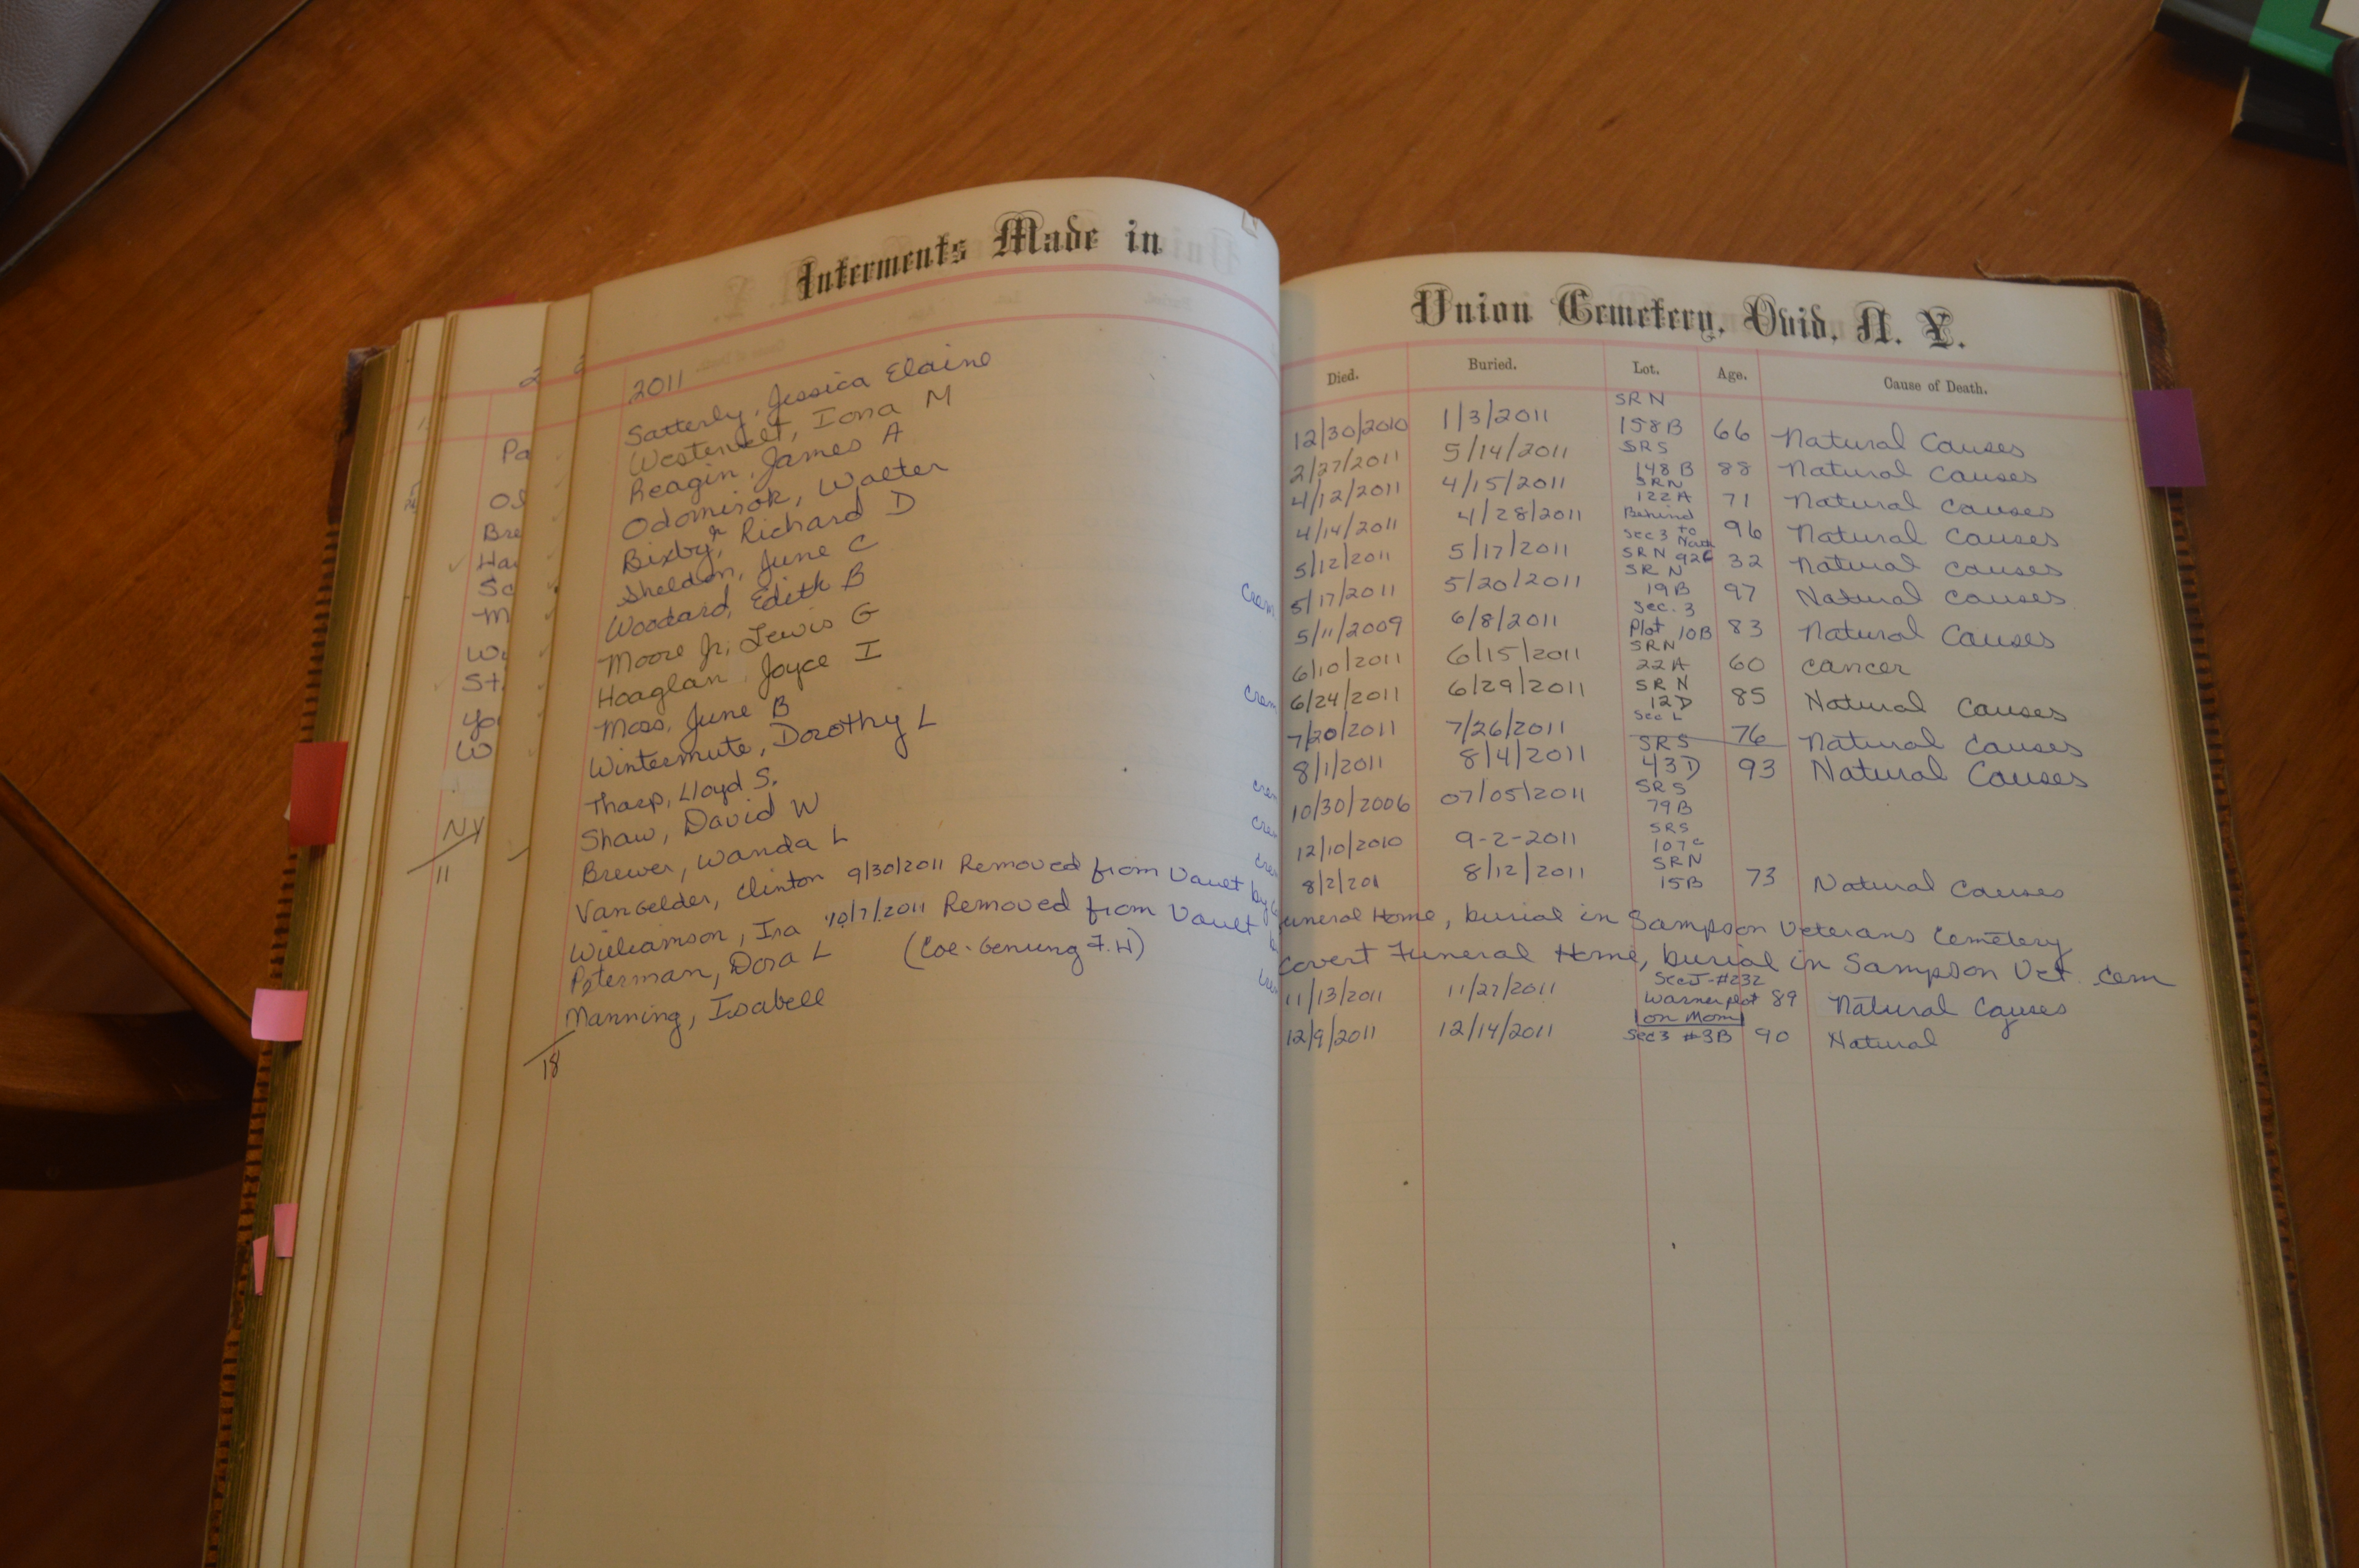 Interments Made in
Union Cemetery, Ovid, N. Y.
Died. Buried. Lot. Age. Cause of Death.
2011
Satterly, Jessica Elaine 12/30/2010 1/3/2011 SRN 158B 66 Natural Causes
Westervelt, Iona M 2/27/2011 5/14/2011 SRS 148B 88 Natural Causes
Reagin, James A 4/12/2011 4/15/2011 SRN 122A 71 Natural Causes
Odomirok, Walter 4/14/2011 4/28/2011 Behind Sec 3 to North 96 Natural Causes
Bixby, Richard D 5/12/2011 5/17/2011 SRN 32 Natural Causes
Sheldon, June C 5/17/2011 5/20/2011 SRN 19B 97 Natural Causes
Woodard, Edith B Crem 5/11/2009 6/8/2011 Sec. 3 Plot 10B 83 Natural Causes
Moore Jr, Lewis G 6/10/2011 6/15/2011 SRN 22A 60 cancer
Hoaglan, Joyce I Crem 6/24/2011 6/29/2011 SRN 12D 85 Natural Causes
Moss, June B 7/20/2011 7/26/2011 Sec L 76 Natural Causes
Wintermute, Dorothy L 8/1/2011 8/4/2011 SRS 43D 93 Natural Causes
Tharp, Lloyd S. crem 10/30/2006 07/05/2011 SRS 79B
Shaw, David W cre 12/10/2010 9-2-2011 SRS 107C
Brewer, Wanda L cre 8/2/201 8/12/2011 SRN 15B 73 Natural Causes
VanGelder, Clinton 9/30/2011 Removed from Vault by Funeral Home, burial in Sampson Veterans Cemetery
Williamson, Ira 10/7/2011 Removed from Vault Covert Funeral Home, burial in Sampson Vet. Cem
Peterman, Dora L (Coe-Genung F.H) 11/13/2011 11/27/2011 Sec J-#232 Warner plot on Mom 89 Natural Causes
Manning, Isabell 12/9/2011 12/14/2011 Sec 3 #3B 90 Natural
18
Pa
Bre
Ha
Sc
M
St.
Yo
W
NY
11